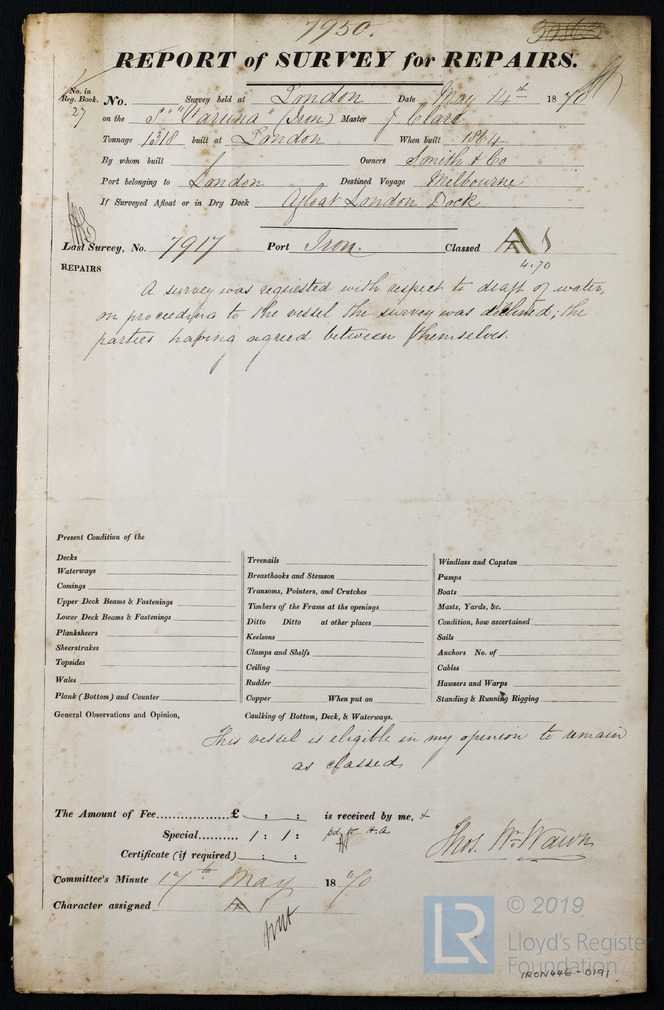 7950.
REPORT of SURVEY for REPAIRS.
No. in
Reg. Book.
27
No. Survey held at London Date May 14th 1870
on the S "Varuna" (Iron) Master J Clare
Tonnage 1318 built at London When built 1864
By whom built Owners Smith & Co
Port belonging to London Destined Voyage Melbourne
If Surveyed Afloat or in Dry Dock Afloat London Dock
Last Survey, No. 7917 Port Iron. Classed A 1
4.70
REPAIRS
A survey was requested with respect to draft of water,
on proceeding to the vessel the survey was declined; the
parties having agreed between themselves.
Present Condition of the
Decks
Waterways
Comings
Upper Deck Beams & Fastenings
Lower Deck Beams & Fastenings
Planksheers
Sheerstrakes
Topsides
Wales
Plank (Bottom) and Counter
Treenails
Breasthooks and Stemson
Transoms, Pointers, and Crutches
Timbers of the Frame at the openings
Ditto Ditto at other places
Keelsons
Clamps and Shelfs
Ceiling
Rudder
Copper When put on
Windlass and Capstan
Pumps
Boats
Masts, Yards, &c.
Condition, how ascertained
Sails
Anchors No. of
Cables
Hawsers and Warps
Standing & Running Rigging
General Observations and Opinion, Caulking of Bottom, Deck, & Waterways.
This vessel is eligible in my opinion to remain
as classed
The Amount of Fee............... £ : : is received by me,
Special.......... 1 : 1 : pd to H.A.
Certificate (if required) : :
Thos. Wm. Wawn
Committee's Minute 17th May 1870
Character assigned A 1
© 2019
Lloyd's Register
Foundation
IRON446-0191